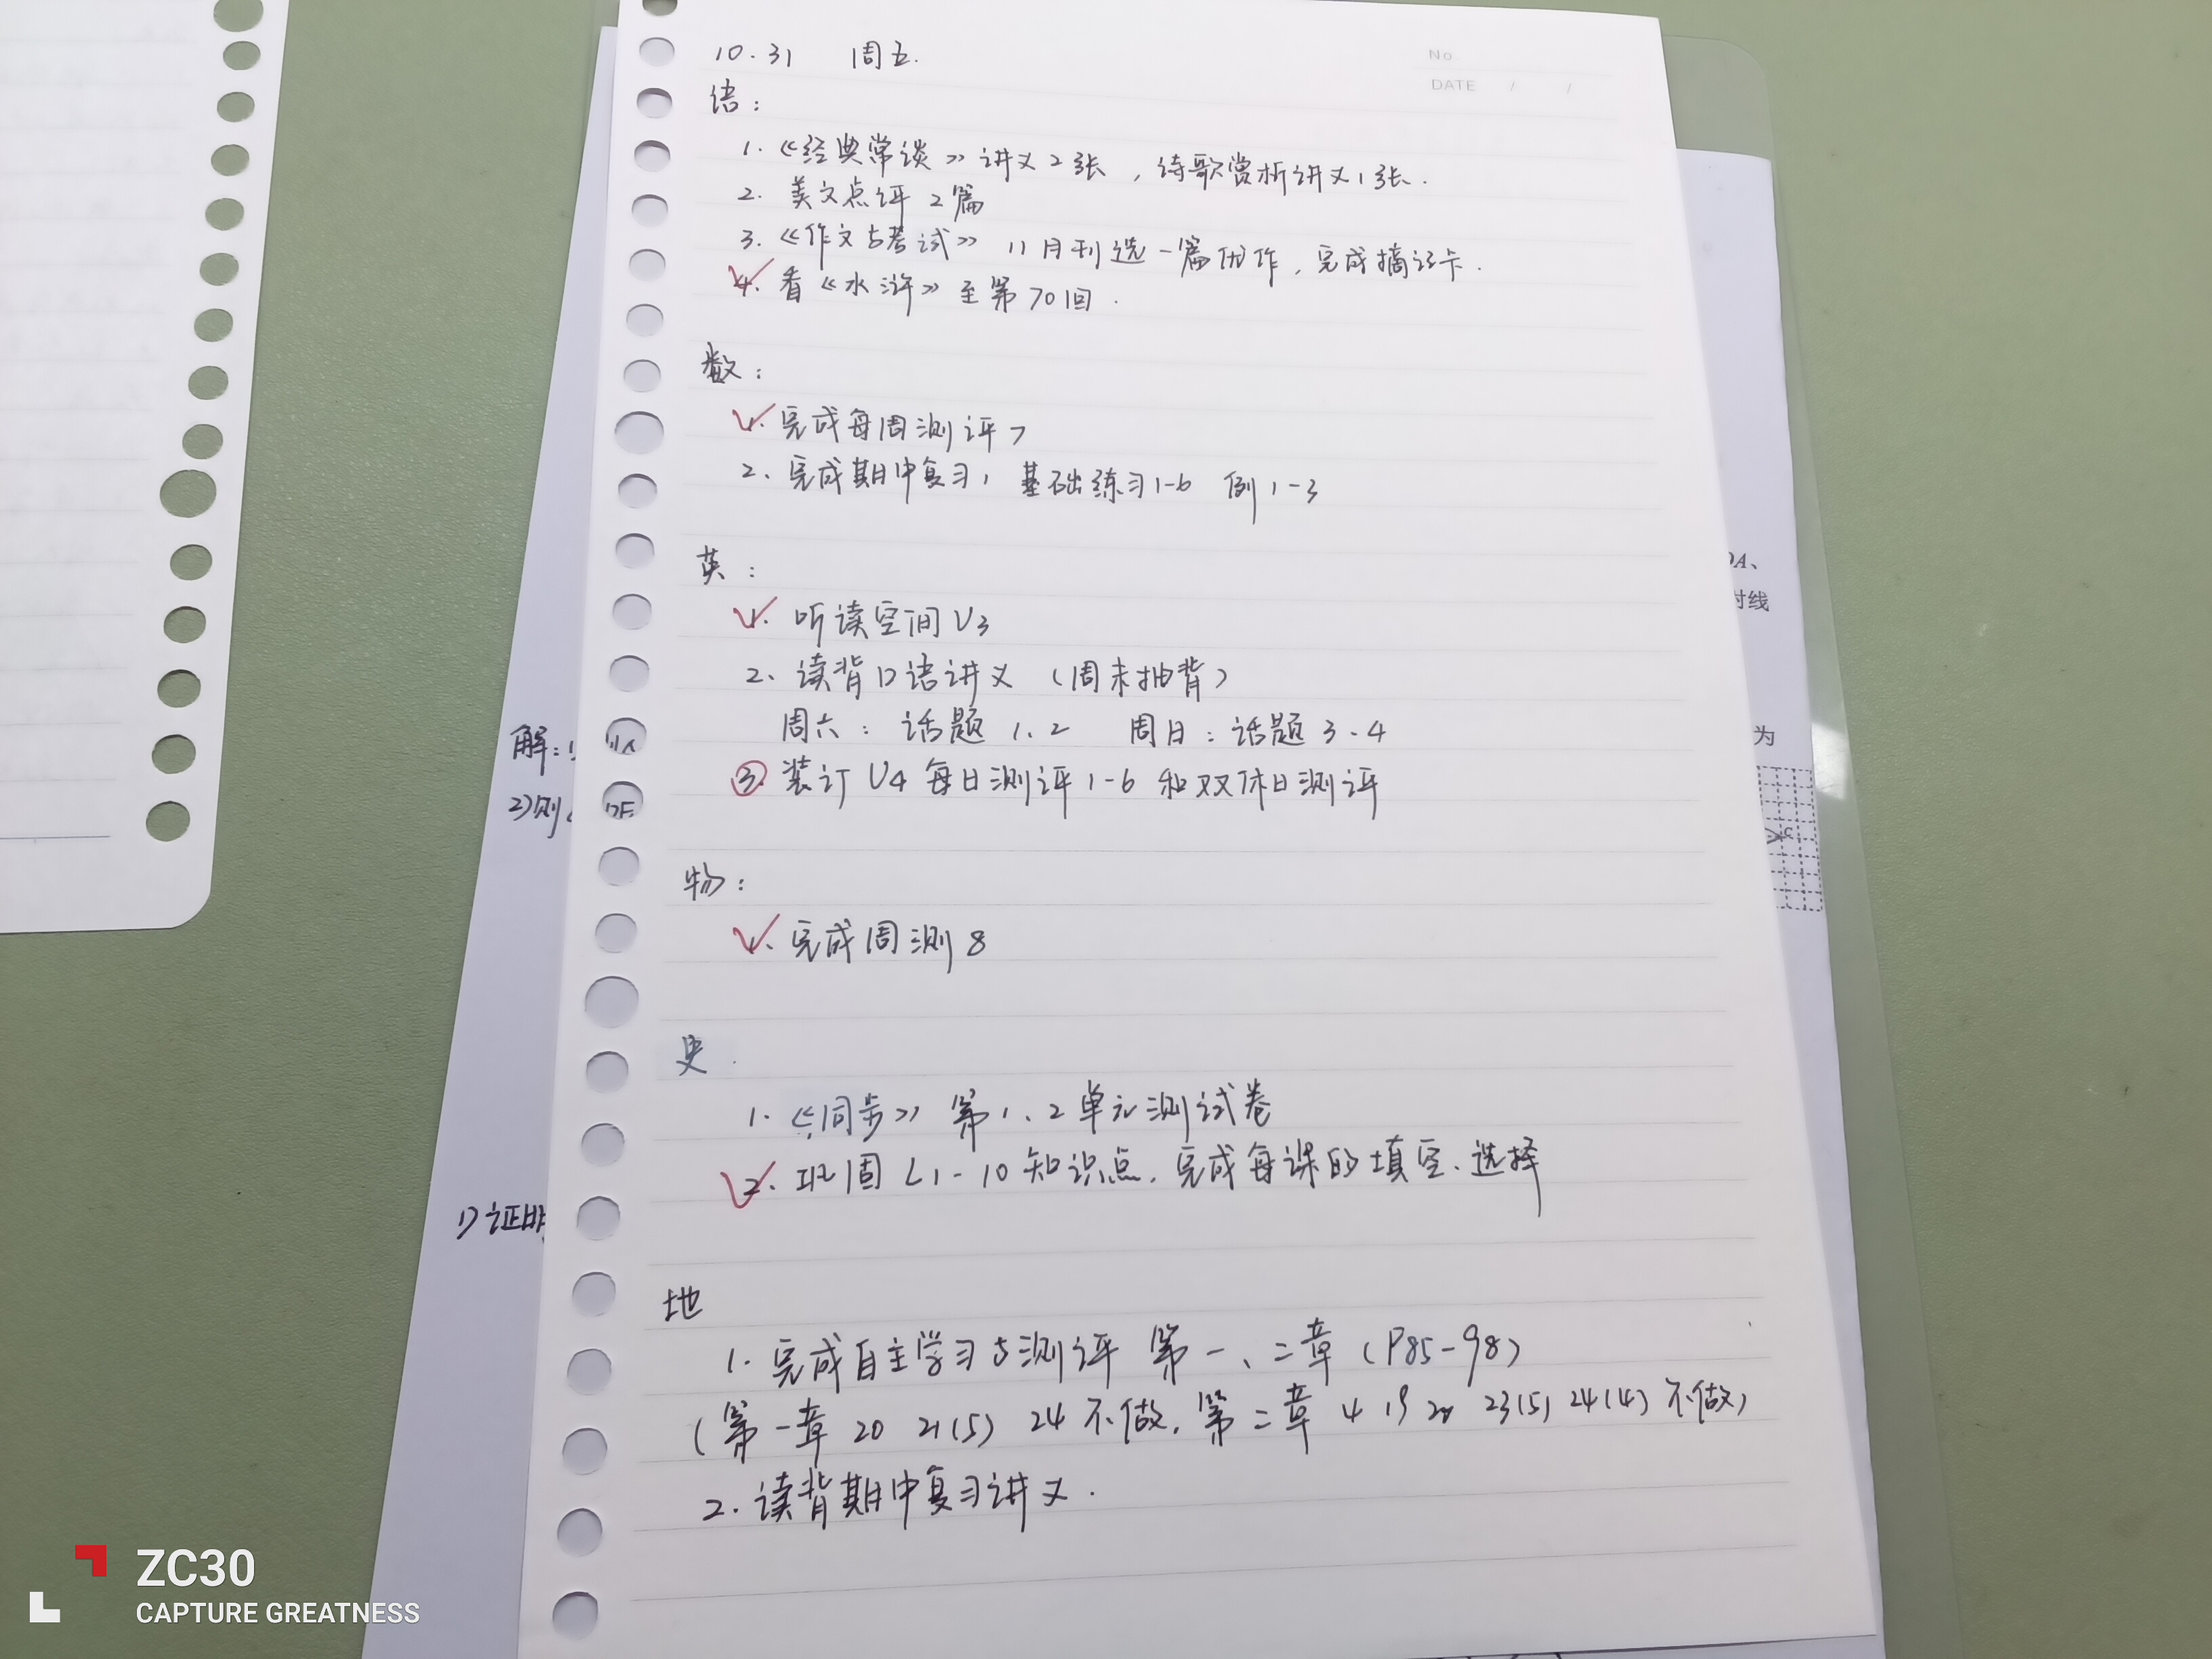 No
DATE / /
10.31 周五.
语:
1.《经典常谈》讲义2张,诗歌赏析讲义1张.
2. 美文点评 2篇
3.《作文与考试》11月刊选一篇优作,完成摘记卡.
4. 看《水浒》至第70回.
数:
1. 完成每周测评7
2、完成期中复习1 基础练习1-6 例1-3
英:
1. 听读空间U3
2、读背口语讲义(周末抽背)
周六:话题1、2 周日:话题3、4
3. 装订U4每日测评1-6和双休日测评
物:
1、完成周测8
史.
1.《同步》第1、2单元测试卷
2. 巩固L1-10知识点,完成每课的填空、选择
地
1. 完成自主学习与测评 第一、二章(P85-98)
(第一章 20 21(5) 24不做,第二章 4 19 23(5) 24(4)不做)
2. 读背期中复习讲义.
解:
2)则
1)证明
OA、
射线
为
C
ZC30
CAPTURE GREATNESS